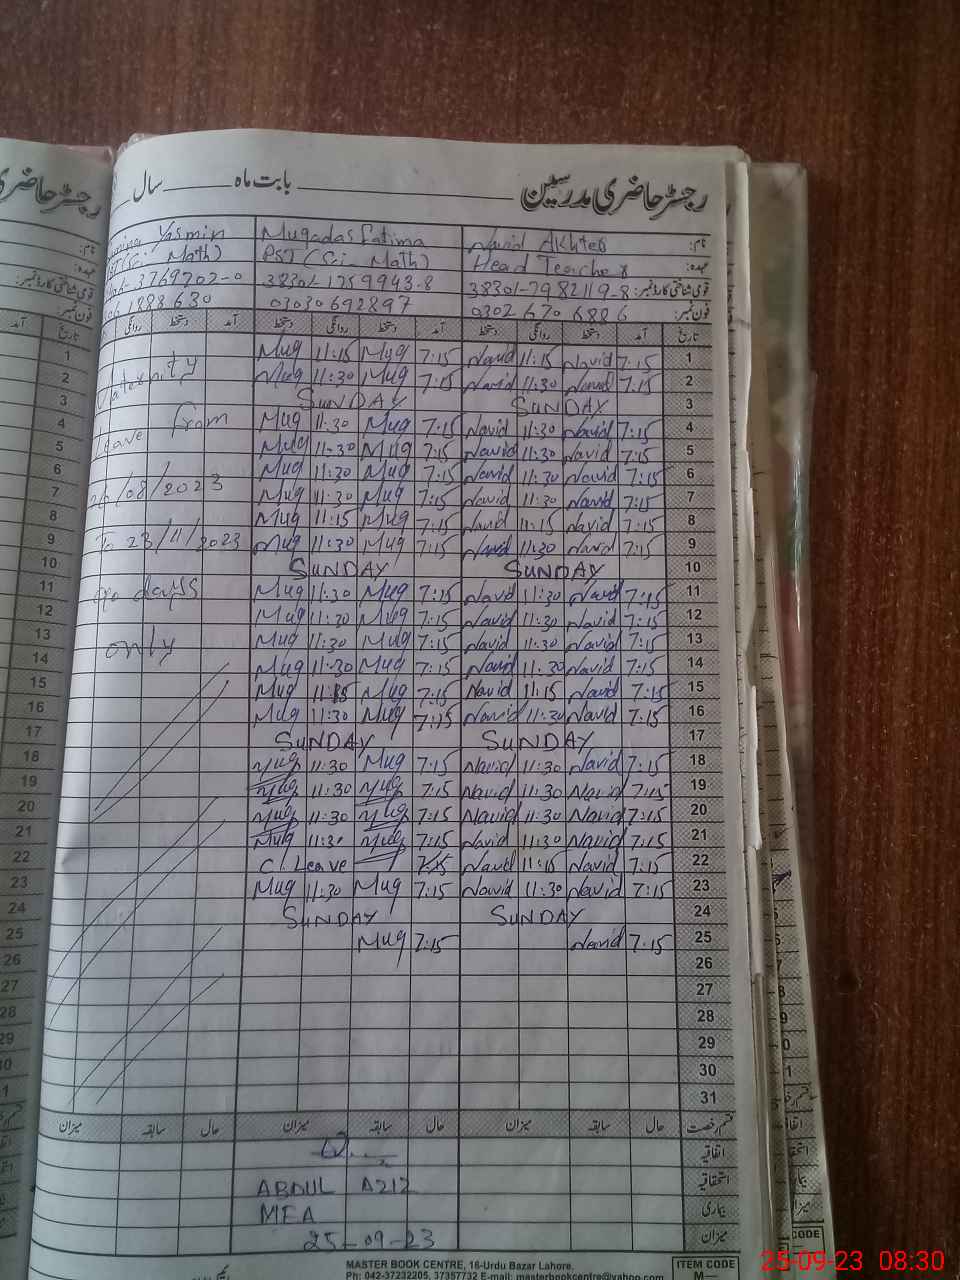 رجسٹر حاضری مدرسین ــــــ بابت ماہ ــــــ سال ــــــ
نام: Navid Akhter Muqadas Fatima Yasmin
عہدہ: Head Teacher PST (Sci Math) PST (Sci Math)
قومی شناختی کارڈ نمبر: 38301-7982119-8 38301-1259943-8 3769702-0
فون نمبر: 0302 670 6886 03030692897 1888630
تاریخ آمد دستخط روانگی دستخط آمد دستخط روانگی دستخط آمد دستخط روانگی
Mug 11:15 Mug 7:15 Navid 11:15 Navid 7:15 1
Mug 11:30 Mug 7:15 Navid 11:30 Navid 7:15 2
SUNDAY SUNDAY 3
Mug 11:30 Mug 7:15 Navid 11:30 Navid 7:15 4
Mug 11-30 Mug 7:15 Navid 11:30 Navid 7:15 5
Mug 11:30 Mug 7:15 Navid 11:30 Navid 7:15 6
Mug 11:30 Mug 7:15 Navid 11:30 Navid 7:15 7
Mug 11:15 Mug 7:15 Navid 11:15 Navid 7:15 8
Mug 11:30 Mug 7:15 Navid 11:30 Navid 7:15 9
SUNDAY SUNDAY 10
Mug 11:30 Mug 7:15 Navid 11:30 Navid 7:15 11
Mug 11:30 Mug 7:15 Navid 11:30 Navid 7:15 12
Mug 11:30 Mug 7:15 Navid 11:30 Navid 7:15 13
Mug 11:30 Mug 7:15 Navid 11:30 Navid 7:15 14
Mug 11:15 Mug 7:15 Navid 11:15 Navid 7:15 15
Mug 11:30 Mug 7:15 Navid 11:30 Navid 7:15 16
SUNDAY SUNDAY 17
Mug 11:30 Mug 7:15 Navid 11:30 Navid 7:15 18
Mug 11:30 Mug 7:15 Navid 11:30 Navid 7:15 19
Mug 11:30 Mug 7:15 Navid 11:30 Navid 7:15 20
Mug 11:30 Mug 7:15 Navid 11:30 Navid 7:15 21
C. Leave 7:15 Navid 11:15 Navid 7:15 22
Mug 11:30 Mug 7:15 Navid 11:30 Navid 7:15 23
SUNDAY SUNDAY 24
Mug 7:15 Navid 7:15 25
26
27
28
29
30
31
Maternity
leave from
26/08/2023
To 23/11/2023
90 days
only
قسم رخصت حال سابقہ میزان حال سابقہ میزان حال سابقہ میزان
اتفاقیہ
استحقاقیہ
بیماری
میزان
ABDUL AZIZ
MEA
25-09-23
MASTER BOOK CENTRE, 16-Urdu Bazar Lahore.
Ph: 042-37232205, 37357732 E-mail: masterbookcentre@yahoo.com
ITEM CODE
M—
25-09-23 08:30